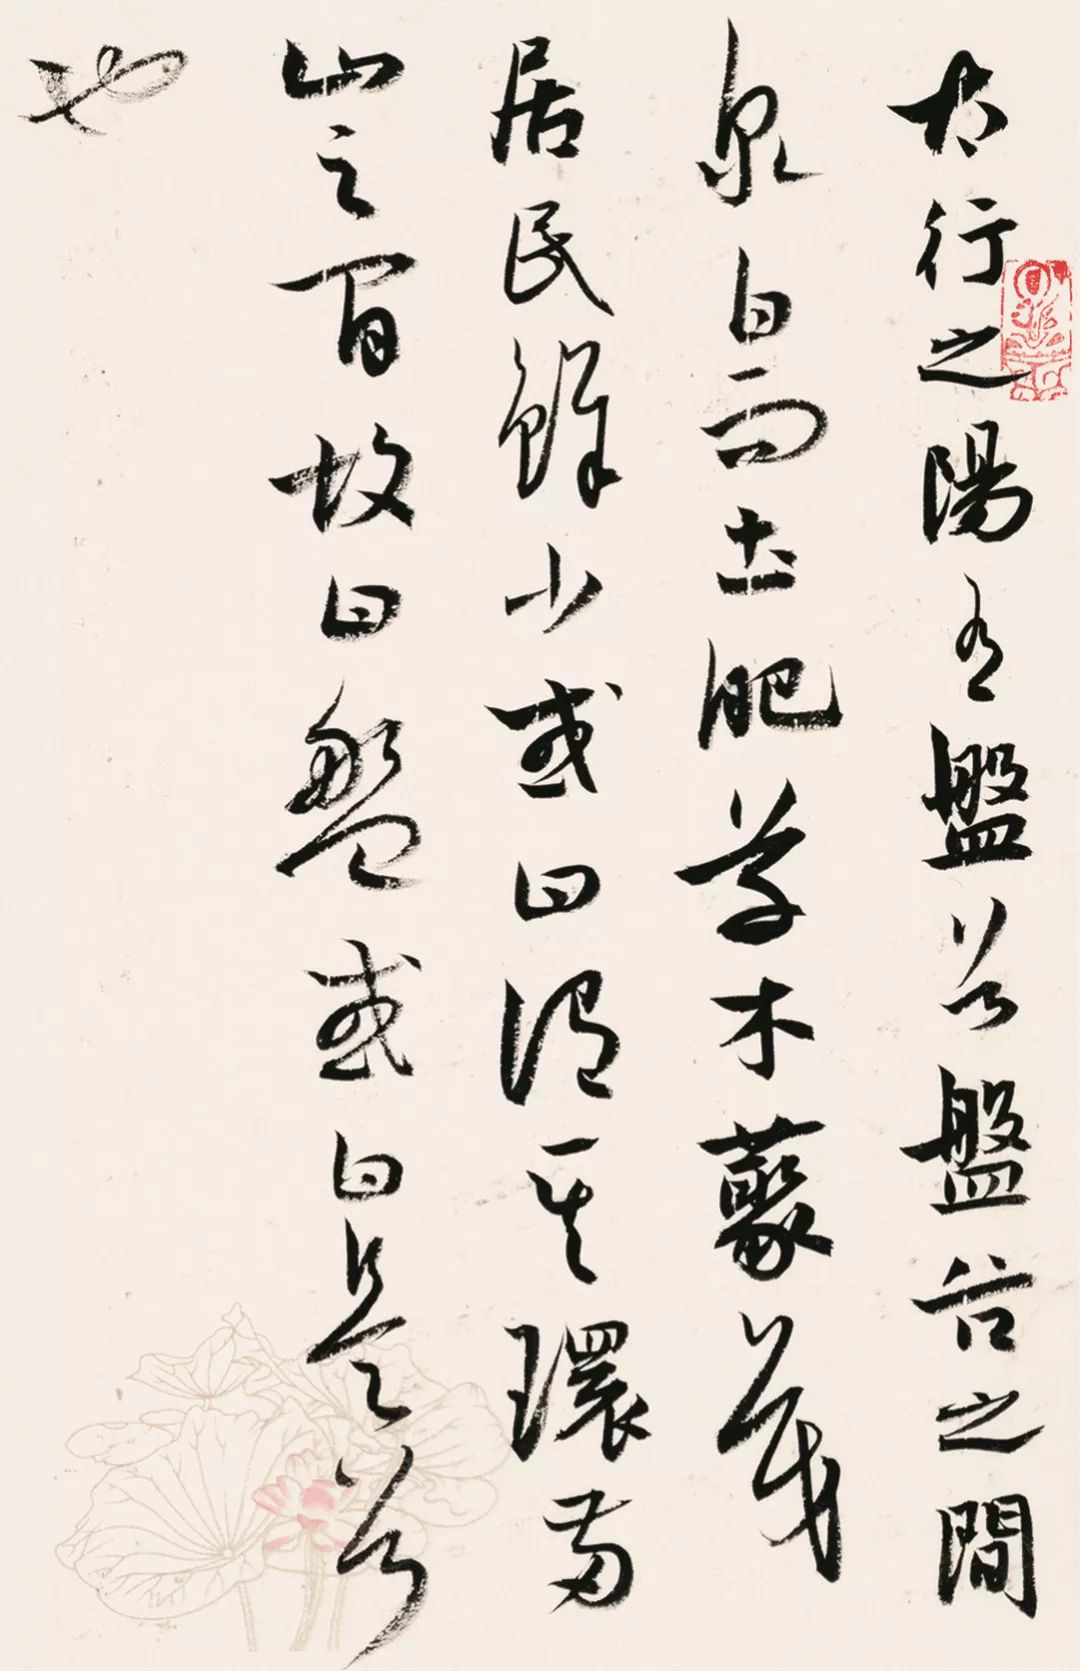 太行之陽有盤谷盤谷之間
泉甘而土肥草木藂茂
居民鮮少或曰謂其環兩
山之間故曰盤或曰是谷
也